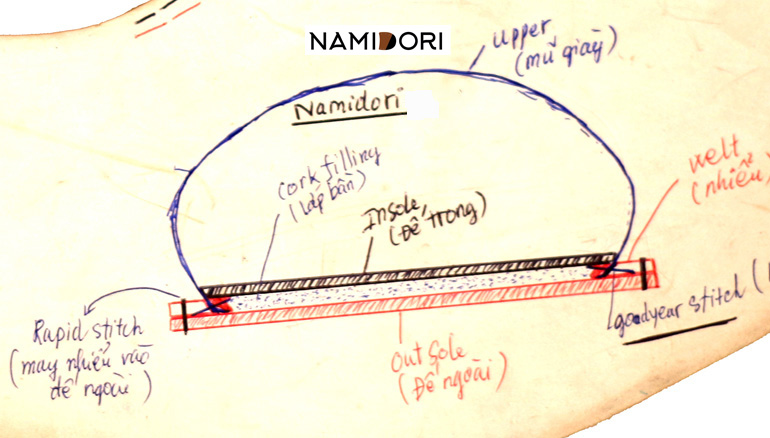 NAMIDORI
upper
(mũ giày)
Namidori
cork filling
(lớp bần)
Insole
(Đế trong)
welt
(nhiểu)
goodyear stitch (
Rapid stitch
(may nhiểu vào
đế ngoài)
Outsole
(Đế ngoài)